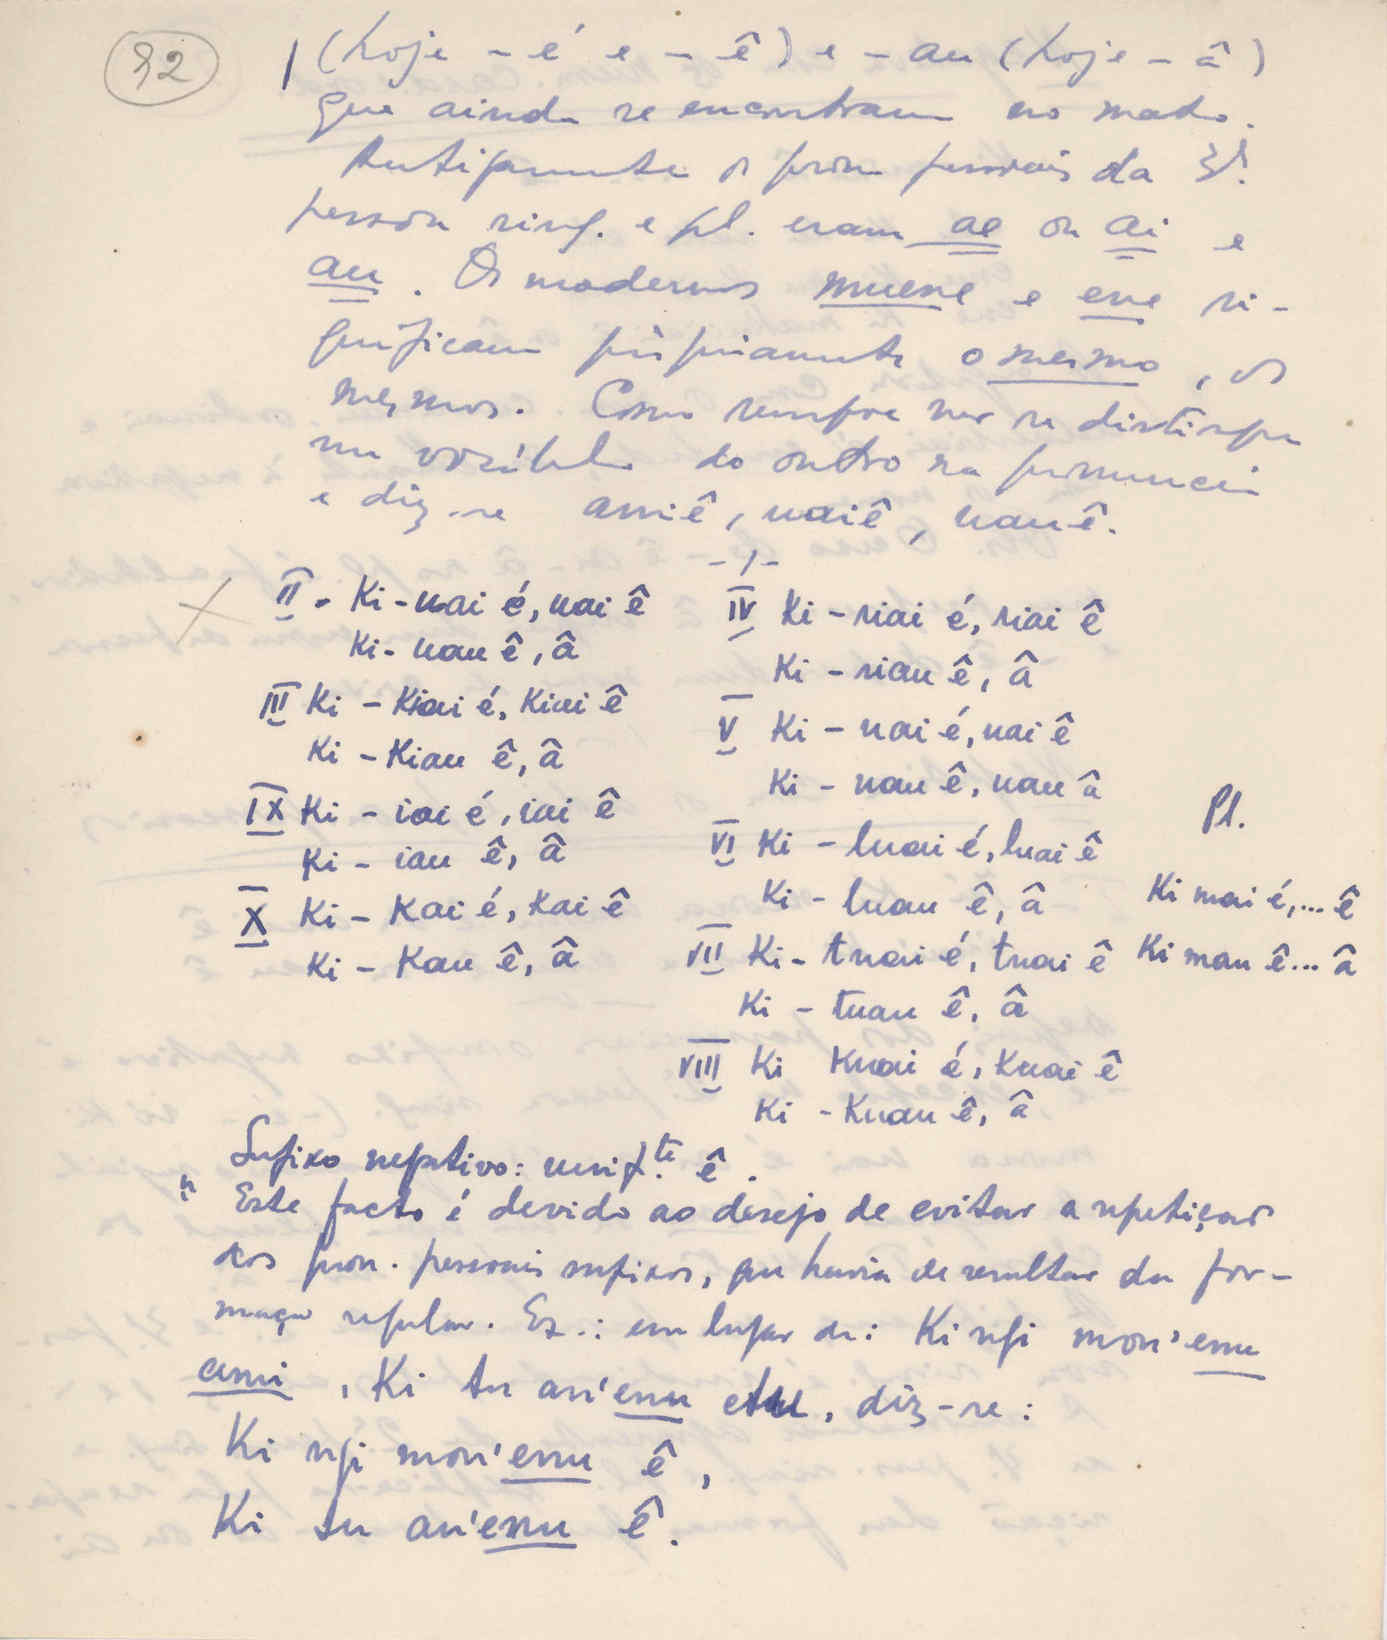 92
(hoje – é e – ê) e – au (hoje – â)
que ainda se encontram no mato.
Antigamente os pron pessoais da 3ª.
pessoa sing. e pl. eram ae ou ai e
au. Os modernos muene e ene si-
gnificam pròpriamente o mesmo, os
mesmos. Como sempre não se distingue
um vocábulo do outro na pronúncia
e diz-se amiê, uaiê, uauê.
II - Ki-uai é, uai ê
Ki-uau ê, â
III Ki – Kiai é, Kiai ê
Ki – Kiau ê, â
IX Ki – iai é, iai ê
Ki – iau ê, â
X Ki – Kai é, Kai ê
Ki – Kau ê, â
IV Ki – riai é, riai ê
Ki – riau ê, â
V Ki – uai é, uai ê
Ki – uau ê, uau â
VI Ki – luai é, luai ê
Ki – luau ê, â
VII Ki – tuai é, tuai ê
Ki – tuau ê, â
VIII Ki Kuai é, Kuai ê
Ki – Kuau ê, â
Pl.
Ki mai é, ... ê
Ki mau ê ... â
Sufixo negativo: ê.
" Este facto é devido ao desejo de evitar a repetição
dos pron. pessoais sufixos, que havia de resultar da for-
mação regular. Ex.: em lugar de: Ki ngi mon'enu
ami, Ki tu an'enu etu, diz-se:
Ki ngi mon'enu ê,
Ki tu an'enu ê.